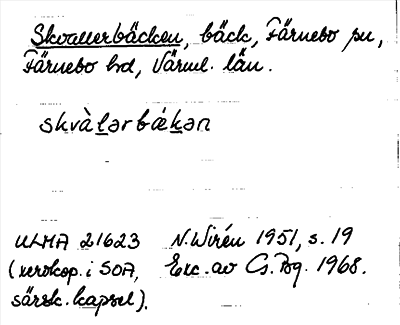 Skvallerbäcken, bäck, Färnebo sn,
Färnebo hd, Värml. län.
skvàlərbǽkən
ULMA 21623 N. Wirén 1951, s. 19
(xerokop. i SOA, Exc. av Cs. Bg. 1968.
särsk. kapsel).